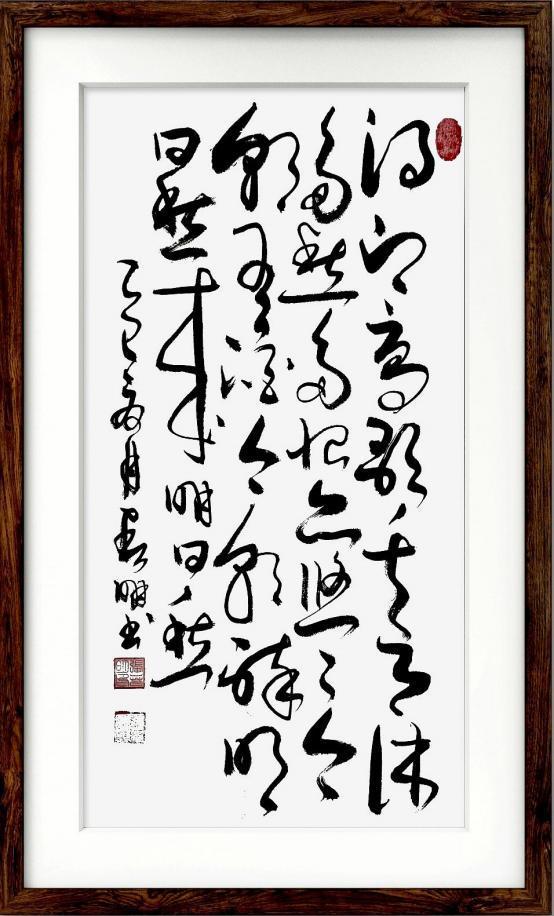 得即高歌失即休
多愁多恨亦悠々今
朝有酒今朝醉明
日愁来明日愁
乙巳月春明书